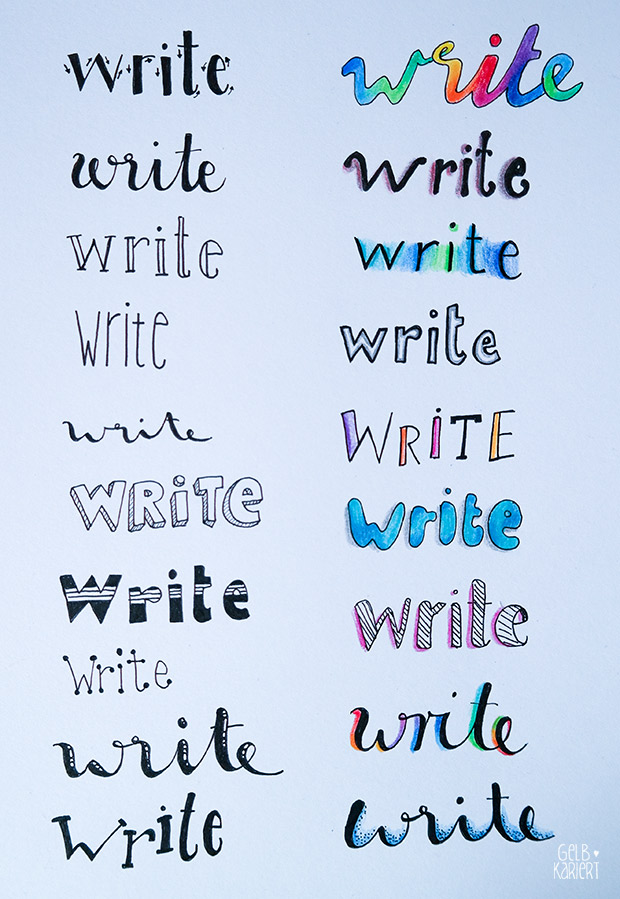 write
write
write
write
write
WRiTe
write
write
write
write
write
write
write
write
WRiTE
write
write
write
write
GELB♥
KARiERT